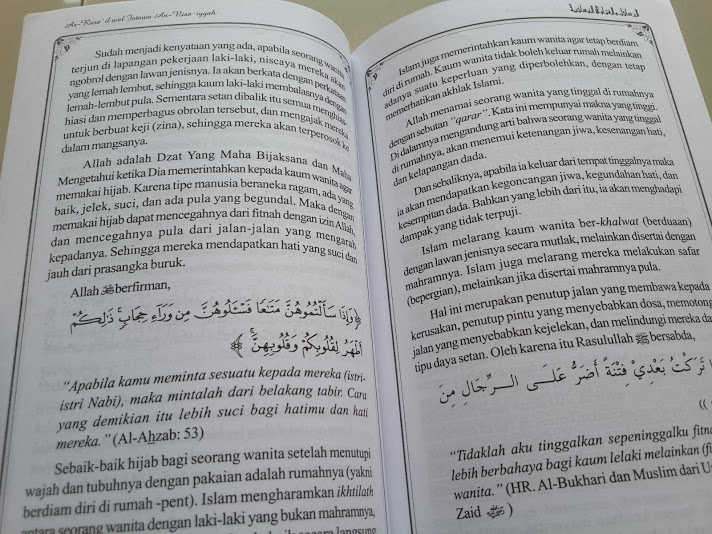 Ar-Rasa'il wal Fatawa An-Nisa'iyyah
Sudah menjadi kenyataan yang ada, apabila seorang wanita
terjun di lapangan pekerjaan laki-laki, niscaya mereka akan
ngobrol dengan lawan jenisnya. Ia akan berkata dengan perkataan
yang lemah lembut, sehingga kaum laki-laki membalasnya dengan
lemah-lembut pula. Sementara setan dibalik itu semua menghiasi-
hiasi dan memperbagus obrolan tersebut, dan mengajak mereka
untuk berbuat keji (zina), sehingga mereka akan terperosok ke
dalam mangsanya.
Allah adalah Dzat Yang Maha Bijaksana dan Maha
Mengetahui ketika Dia memerintahkan kepada kaum wanita agar
memakai hijab. Karena tipe manusia beraneka ragam, ada yang
baik, jelek, suci, dan ada pula yang begundal. Maka dengan
memakai hijab dapat mencegahnya dari fitnah dengan izin Allah,
dan mencegahnya pula dari jalan-jalan yang mengarah
kepadanya. Sehingga mereka mendapatkan hati yang suci dan
jauh dari prasangka buruk.
Allah ﷻ berfirman,
﴿ وَإِذَا سَأَلْتُمُوهُنَّ مَتَـٰعًا فَسْـَٔلُوهُنَّ مِن وَرَآءِ حِجَابٍ ۚ ذَٰلِكُمْ
أَطْهَرُ لِقُلُوبِكُمْ وَقُلُوبِهِنَّ ۚ ﴾
“Apabila kamu meminta sesuatu kepada mereka (istri-
istri Nabi), maka mintalah dari belakang tabir. Cara
yang demikian itu lebih suci bagi hatimu dan hati
mereka.” (Al-Ahzab: 53)
Sebaik-baik hijab bagi seorang wanita setelah menutupi
wajah dan tubuhnya dengan pakaian adalah rumahnya (yakni
berdiam diri di rumah -pent). Islam mengharamkan ikhtilath
antara seorang wanita dengan laki-laki yang bukan mahramnya,
secara langsung
Islam juga memerintahkan kaum wanita agar tetap berdiam
diri di rumah. Kaum wanita tidak boleh keluar rumah melainkan
adanya suatu keperluan yang diperbolehkan, dengan tetap
memerhatikan akhlak Islami.
Allah menamai seorang wanita yang tinggal di rumahnya
dengan sebutan “qarar”. Kata ini mempunyai makna yang tinggi.
Di dalamnya mengandung arti bahwa seorang wanita yang tinggal
di rumahnya, akan menemui ketenangan jiwa, kesenangan hati,
dan kelapangan dada.
Dan sebaliknya, apabila ia keluar dari tempat tinggalnya maka
ia akan mendapatkan kegoncangan jiwa, kegundahan hati, dan
kesempitan dada. Bahkan yang lebih dari itu, ia akan menghadapi
dampak yang tidak terpuji.
Islam melarang kaum wanita ber-khalwat (berduaan)
dengan lawan jenisnya secara mutlak, melainkan disertai dengan
mahramnya. Islam juga melarang mereka melakukan safar
(bepergian), melainkan jika disertai mahramnya pula.
Hal ini merupakan penutup jalan yang membawa kepada
kerusakan, penutup pintu yang menyebabkan dosa, memotong
jalan yang menyebabkan kejelekan, dan melindungi mereka dari
tipu daya setan. Oleh karena itu Rasulullah ﷺ bersabda,
تَرَكْتُ بَعْدِيْ فِتْنَةً أَضَرُّ عَلَـى الـرِّجَالِ مِنَ
“Tidaklah aku tinggalkan sepeninggalku fitn
lebih berbahaya bagi kaum lelaki melainkan (fi
wanita.” (HR. Al-Bukhari dan Muslim dari Us
Zaid )